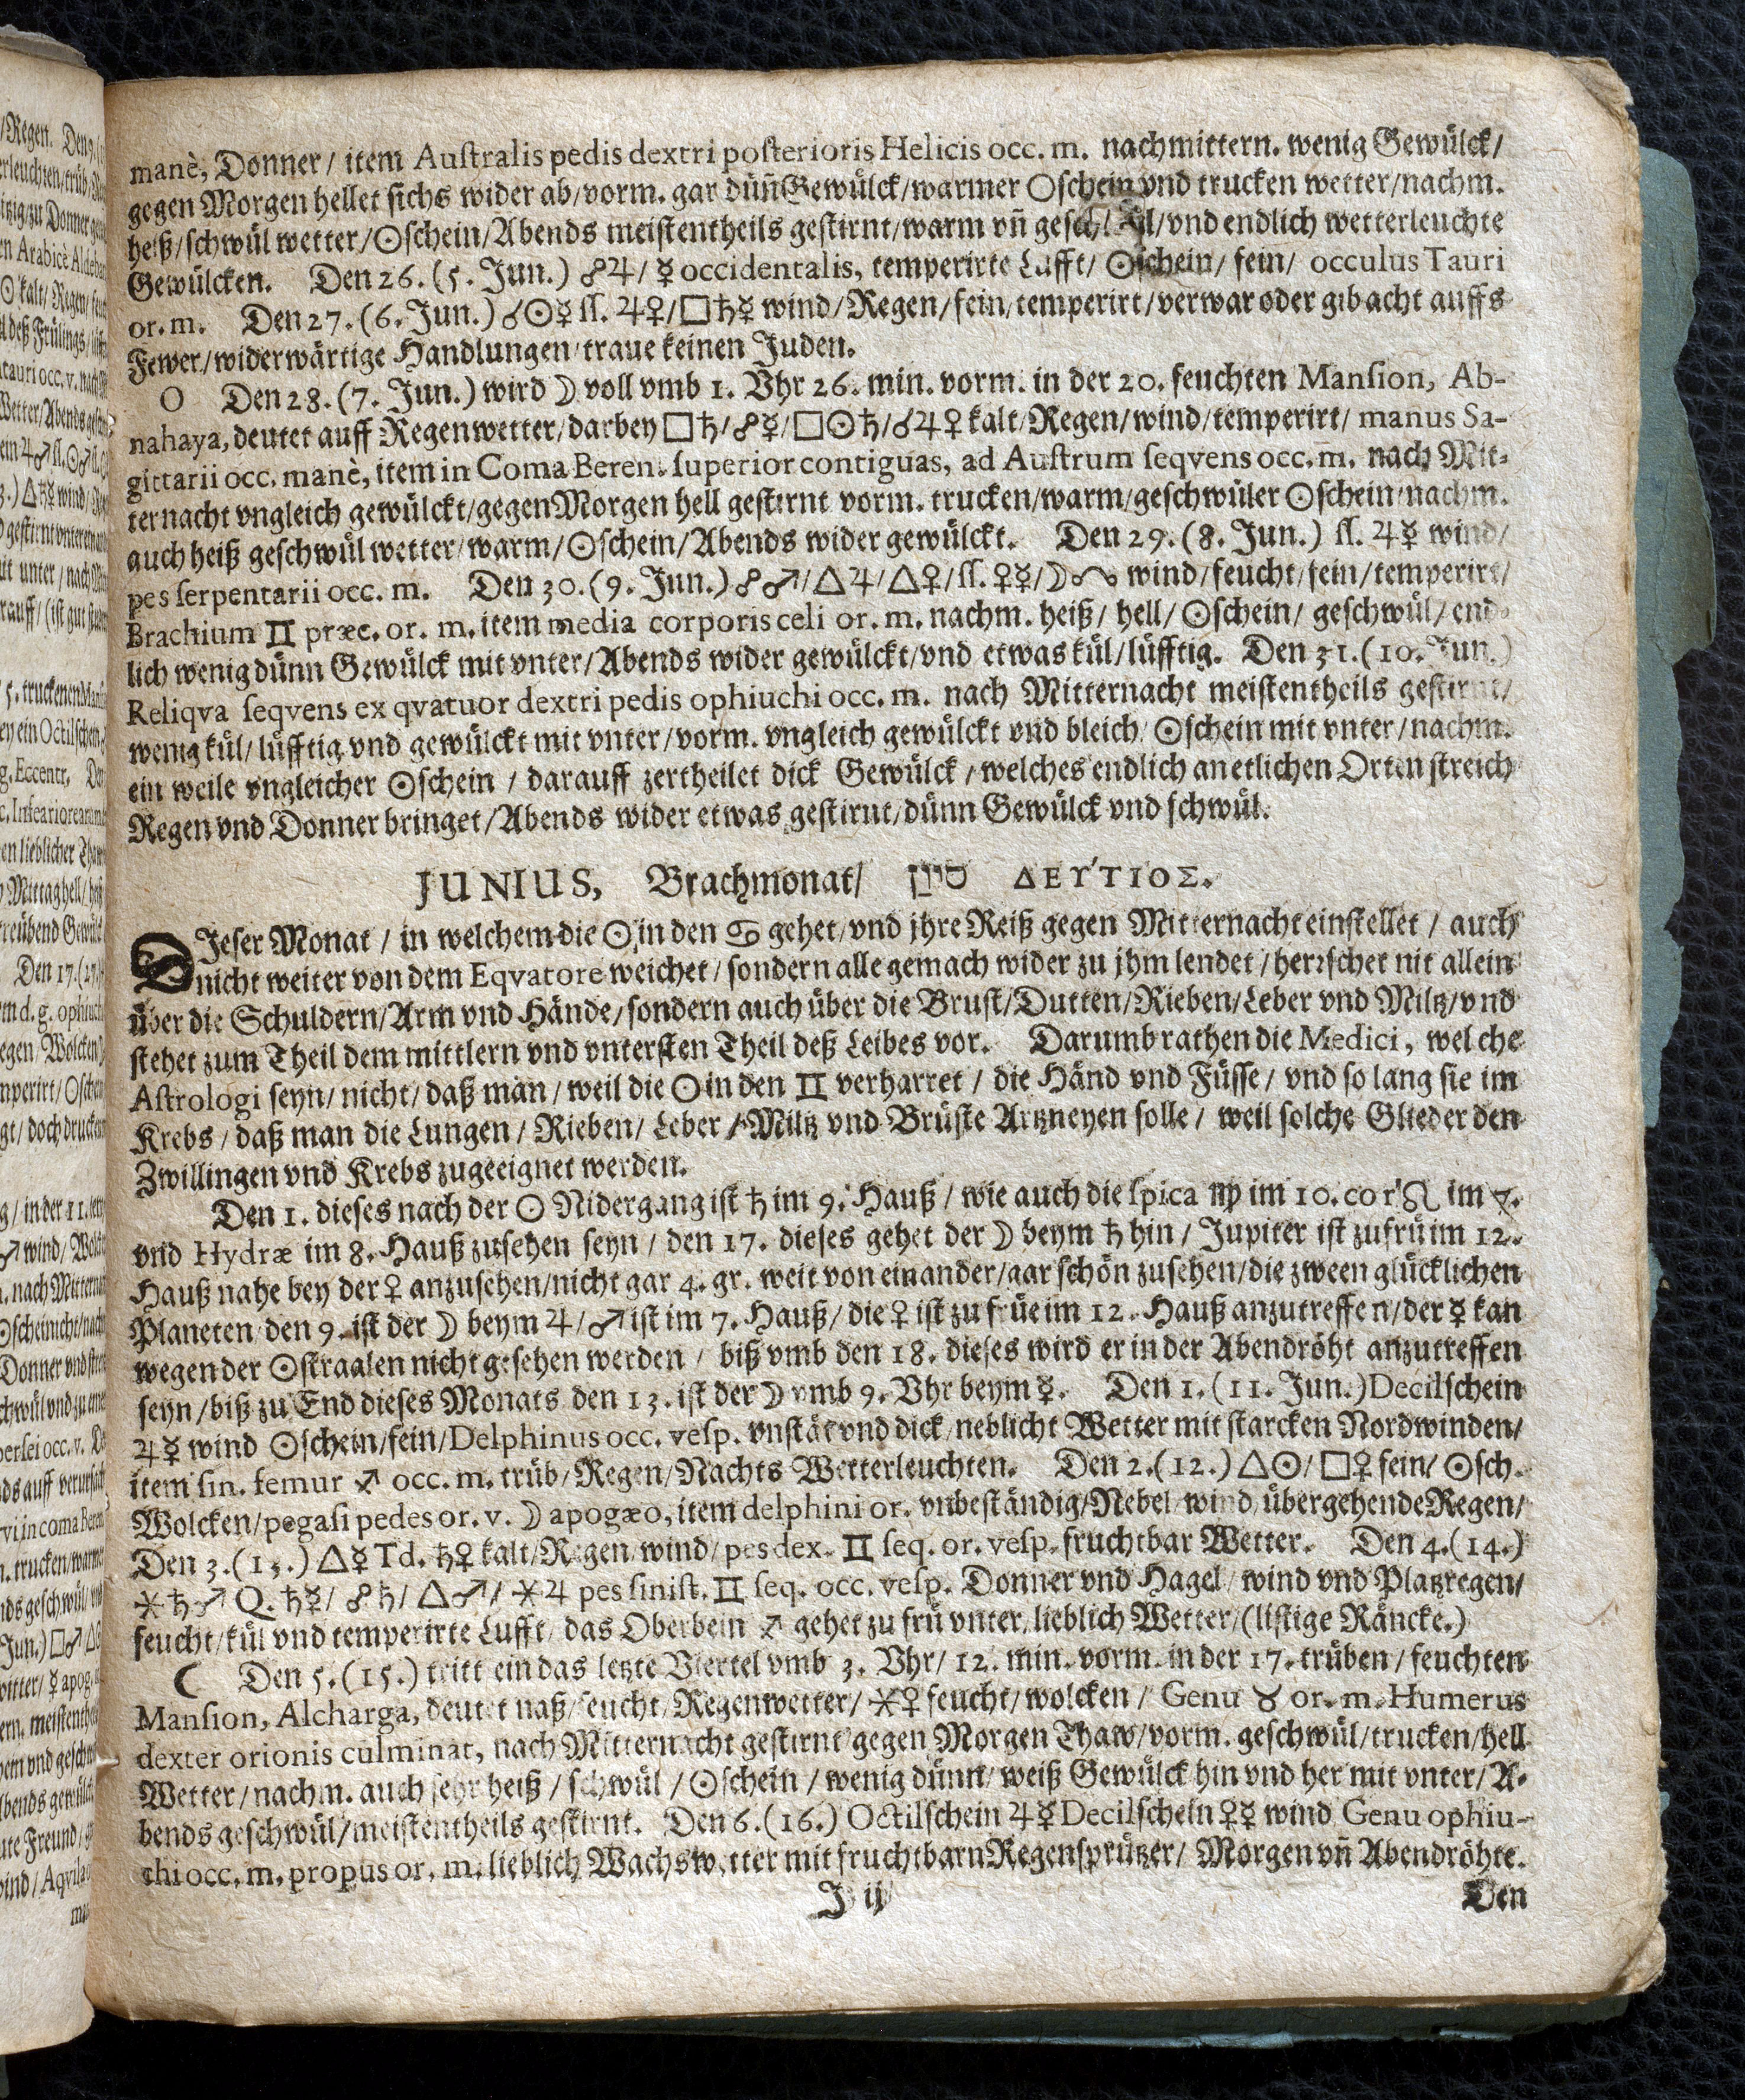 manè, Donner / item Australis pedis dextri posterioris Helicis occ. m. nachmittern. wenig Gewülck/
gegen Morgen hellet sichs wider ab/vorm. gar dün̄ Gewülck/warmer ☉schein vnd trucken wetter/nachm.
heiß/schwül wetter/☉schein/Abends meistentheils gestirnt/warm vn̄ /vnd endlich wetterleuchte
Gewülcken. Den 26. (5. Jun.) ☍♃/ ☿ occidentalis, temperirte Lufft/ ☉schein/ fein/ occulus Tauri
or. m. Den 27. (6. Jun.) ☌☉☿ ſſ. ♃♀/□♄☿ wind/Regen/fein/temperirt/verwar oder gib acht auffs
Fewer/widerwärtige Handlungen/traue keinen Juden.
O Den 28. (7. Jun.) wird ☽ voll vmb 1. Vhr 26. min. vorm. in der 20. feuchten Mansion, Ab-
nahaya, deutet auff Regenwetter/darbey □♄/☍☿/□☉♄/☌♃♀ kalt/Regen/wind/temperirt/ manus Sa-
gittarii occ. manè, item in Coma Beren. superior contiguas, ad Austrum seqvens occ. m. nach Mit-
ternacht vngleich gewülckt/gegen Morgen hell gestirnt vorm. trucken/warm/geschwüler ☉schein/nachm.
auch heiß geschwül wetter/warm/☉schein/Abends wider gewülckt. Den 29. (8. Jun.) ſſ. ♃☿ wind/
pes serpentarii occ. m. Den 30. (9. Jun.) ☍♂/△♃/△♀/ſſ. ♀☿/☽ wind/feucht/fein/temperirt/
Brachium ♊ præc. or. m. item media corporis celi or. m. nachm. heiß/ hell/ ☉schein/ geschwül/ end-
lich wenig dünn Gewülck mit vnter/Abends wider gewülckt/vnd etwas kül/lüfftig. Den 31. (10. Jun.)
Reliqva seqvens ex qvatuor dextri pedis ophiuchi occ. m. nach Mitternacht meistentheils gestirnt/
wenig kül/ lüfftig vnd gewülckt mit vnter/vorm. vngleich gewülckt vnd bleich/ ☉schein mit vnter/nachm.
ein weile vngleicher ☉schein / darauff zertheilet dick Gewülck / welches endlich an etlichen Orten streich
Regen vnd Donner bringet/Abends wider etwas gestirnt/dünn Gewülck vnd schwül.
JUNIUS, Brachmonat/ סיון ΔΕΎΤΙΟΣ.
DIeser Monat / in welchem die ☉ in den ♋ gehet/vnd jhre Reiß gegen Mitternacht einstellet / auch
nicht weiter von dem Eqvatore weichet / sondern alle gemach wider zu jhm lendet / herrschet nit allein
über die Schuldern/Arm vnd Hände/sondern auch über die Brust/Dutten/Rieben/Leber vnd Miltz/vnd
stehet zum Theil dem mittlern vnd vntersten Theil deß Leibes vor. Darumb rathen die Medici, welche
Astrologi seyn/ nicht/ daß man / weil die ☉ in den ♊ verharret / die Händ vnd Füsse/ vnd so lang sie im
Krebs / daß man die Lungen / Rieben/ Leber / Miltz vnd Brüste Artzneyen solle/ weil solche Glieder den
Zwillingen vnd Krebs zugeeignet werden.
Den 1. dieses nach der ☉ Nidergang ist ♄ im 9. Hauß / wie auch die spica ♍ im 10. cor ♌ im 7.
vnd Hydræ im 8. Hauß zusehen seyn / den 17. dieses gehet der ☽ beym ♄ hin / Jupiter ist zu frü im 12.
Hauß nahe bey der ♀ anzusehen/nicht gar 4. gr. weit von einander/gar schön zusehen/die zween glücklichen
Planeten/ den 9. ist der ☽ beym ♃/♂ ist im 7. Hauß/ die ♀ ist zu früe im 12. Hauß anzutreffen/der ☿ kan
wegen der ☉straalen nicht gesehen werden / biß vmb den 18. dieses wird er in der Abendröht anzutreffen
seyn/biß zu End dieses Monats den 13. ist der ☽ vmb 9. Vhr beym ☿. Den 1. (11. Jun.) Decilschein
♃☿ wind ☉schein/fein/Delphinus occ. vesp. vnstät vnd dick/neblicht Wetter mit starcken Nordwinden/
item sin. femur ♐ occ. m. trüb/Regen/Nachts Wetterleuchten. Den 2. (12.) △☉/□♀ fein/ ☉sch.
Wolcken/pegasi pedes or. v. ☽ apogæo, item delphini or. vnbeständig/Nebel/wind/übergehende Regen/
Den 3. (13.) △☿ Td. ♄♀ kalt/Regen/wind/pes dex. ♊ seq. or. vesp. fruchtbar Wetter. Den 4. (14.)
⚹♄♂ Q. ♄☿/ ☍♄/ △♂/ ⚹♃ pes sinist. ♊ seq. occ. vesp. Donner vnd Hagel/ wind vnd Platzregen/
feucht/kül vnd temperirte Lufft/ das Oberbein ♐ gehet zu frü vnter/lieblich Wetter/(listige Räncke.)
☾ Den 5. (15.) tritt ein das letzte Viertel vmb 3. Vhr/ 12. min. vorm. in der 17. trüben/ feuchten
Mansion, Alcharga, deutet naß/feucht/Regenwetter/ ⚹♀ feucht/wolcken / Genu ♉ or. m. Humerus
dexter orionis culminat, nach Mitternacht gestirnt/gegen Morgen Thaw/vorm. geschwül/trucken/hell
Wetter/nachm. auch sehr heiß / schwül / ☉schein / wenig dünn/ weiß Gewülck hin vnd her mit vnter/ A-
bends geschwül/meistentheils gestirnt. Den 6. (16.) Octilschein ♃☿ Decilschein ♀☿ wind Genu ophiu-
chi occ. m. propus or. m. lieblich Wachswetter mit fruchtbarn Regensprützer/ Morgen vn̄ Abendröhte.
J ij
Den